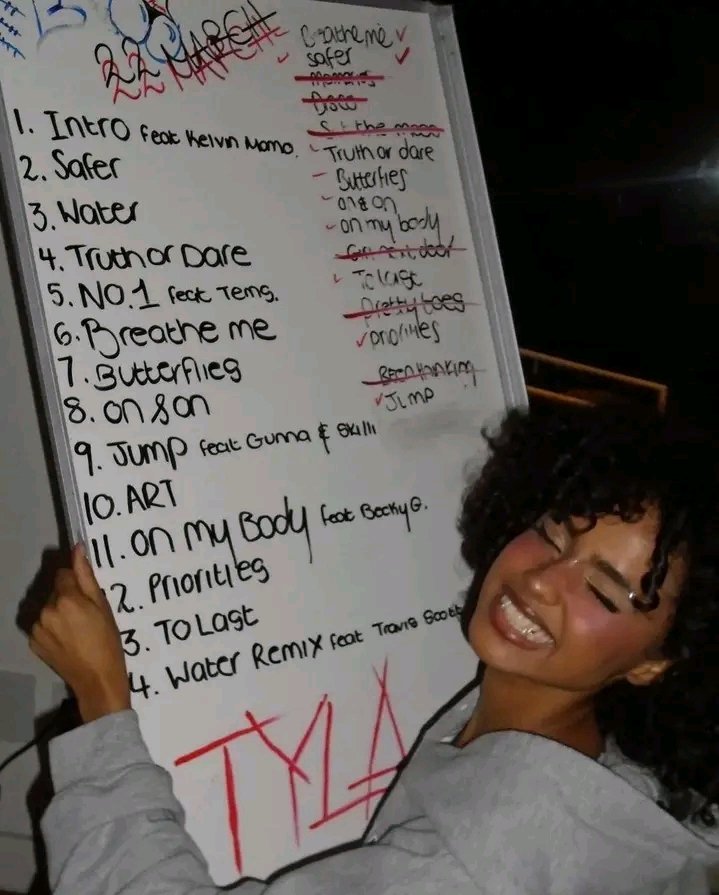 22 MARCH
1. Intro feat Kelvin Momo.
2. Safer
3. Water
4. Truth or Dare
5. NO.1 feat Tems.
6. Breathe me
7. Butterflies
8. on & on
9. Jump feat Gunna & Skilli
10. ART
11. on my Body feat Becky G.
2. Priorities
3. To Last
4. Water Remix feat Travis Scott
TYLA
Breathe me
safer
Memories
Disco
the moon
Truth or dare
Butterflies
on & on
on my body
Girl next door
To last
Pretty toes
priorities
Been thinking
Jump